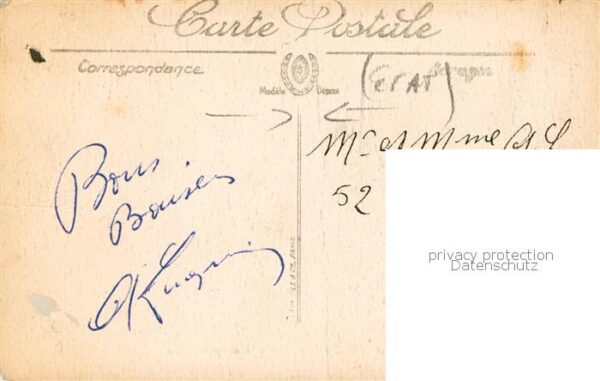 Carte Postale
Correspondance
Modèle Déposé
(ETAT)
Mr et Mme
52
Bons
Baisers
privacy protection
Datenschutz